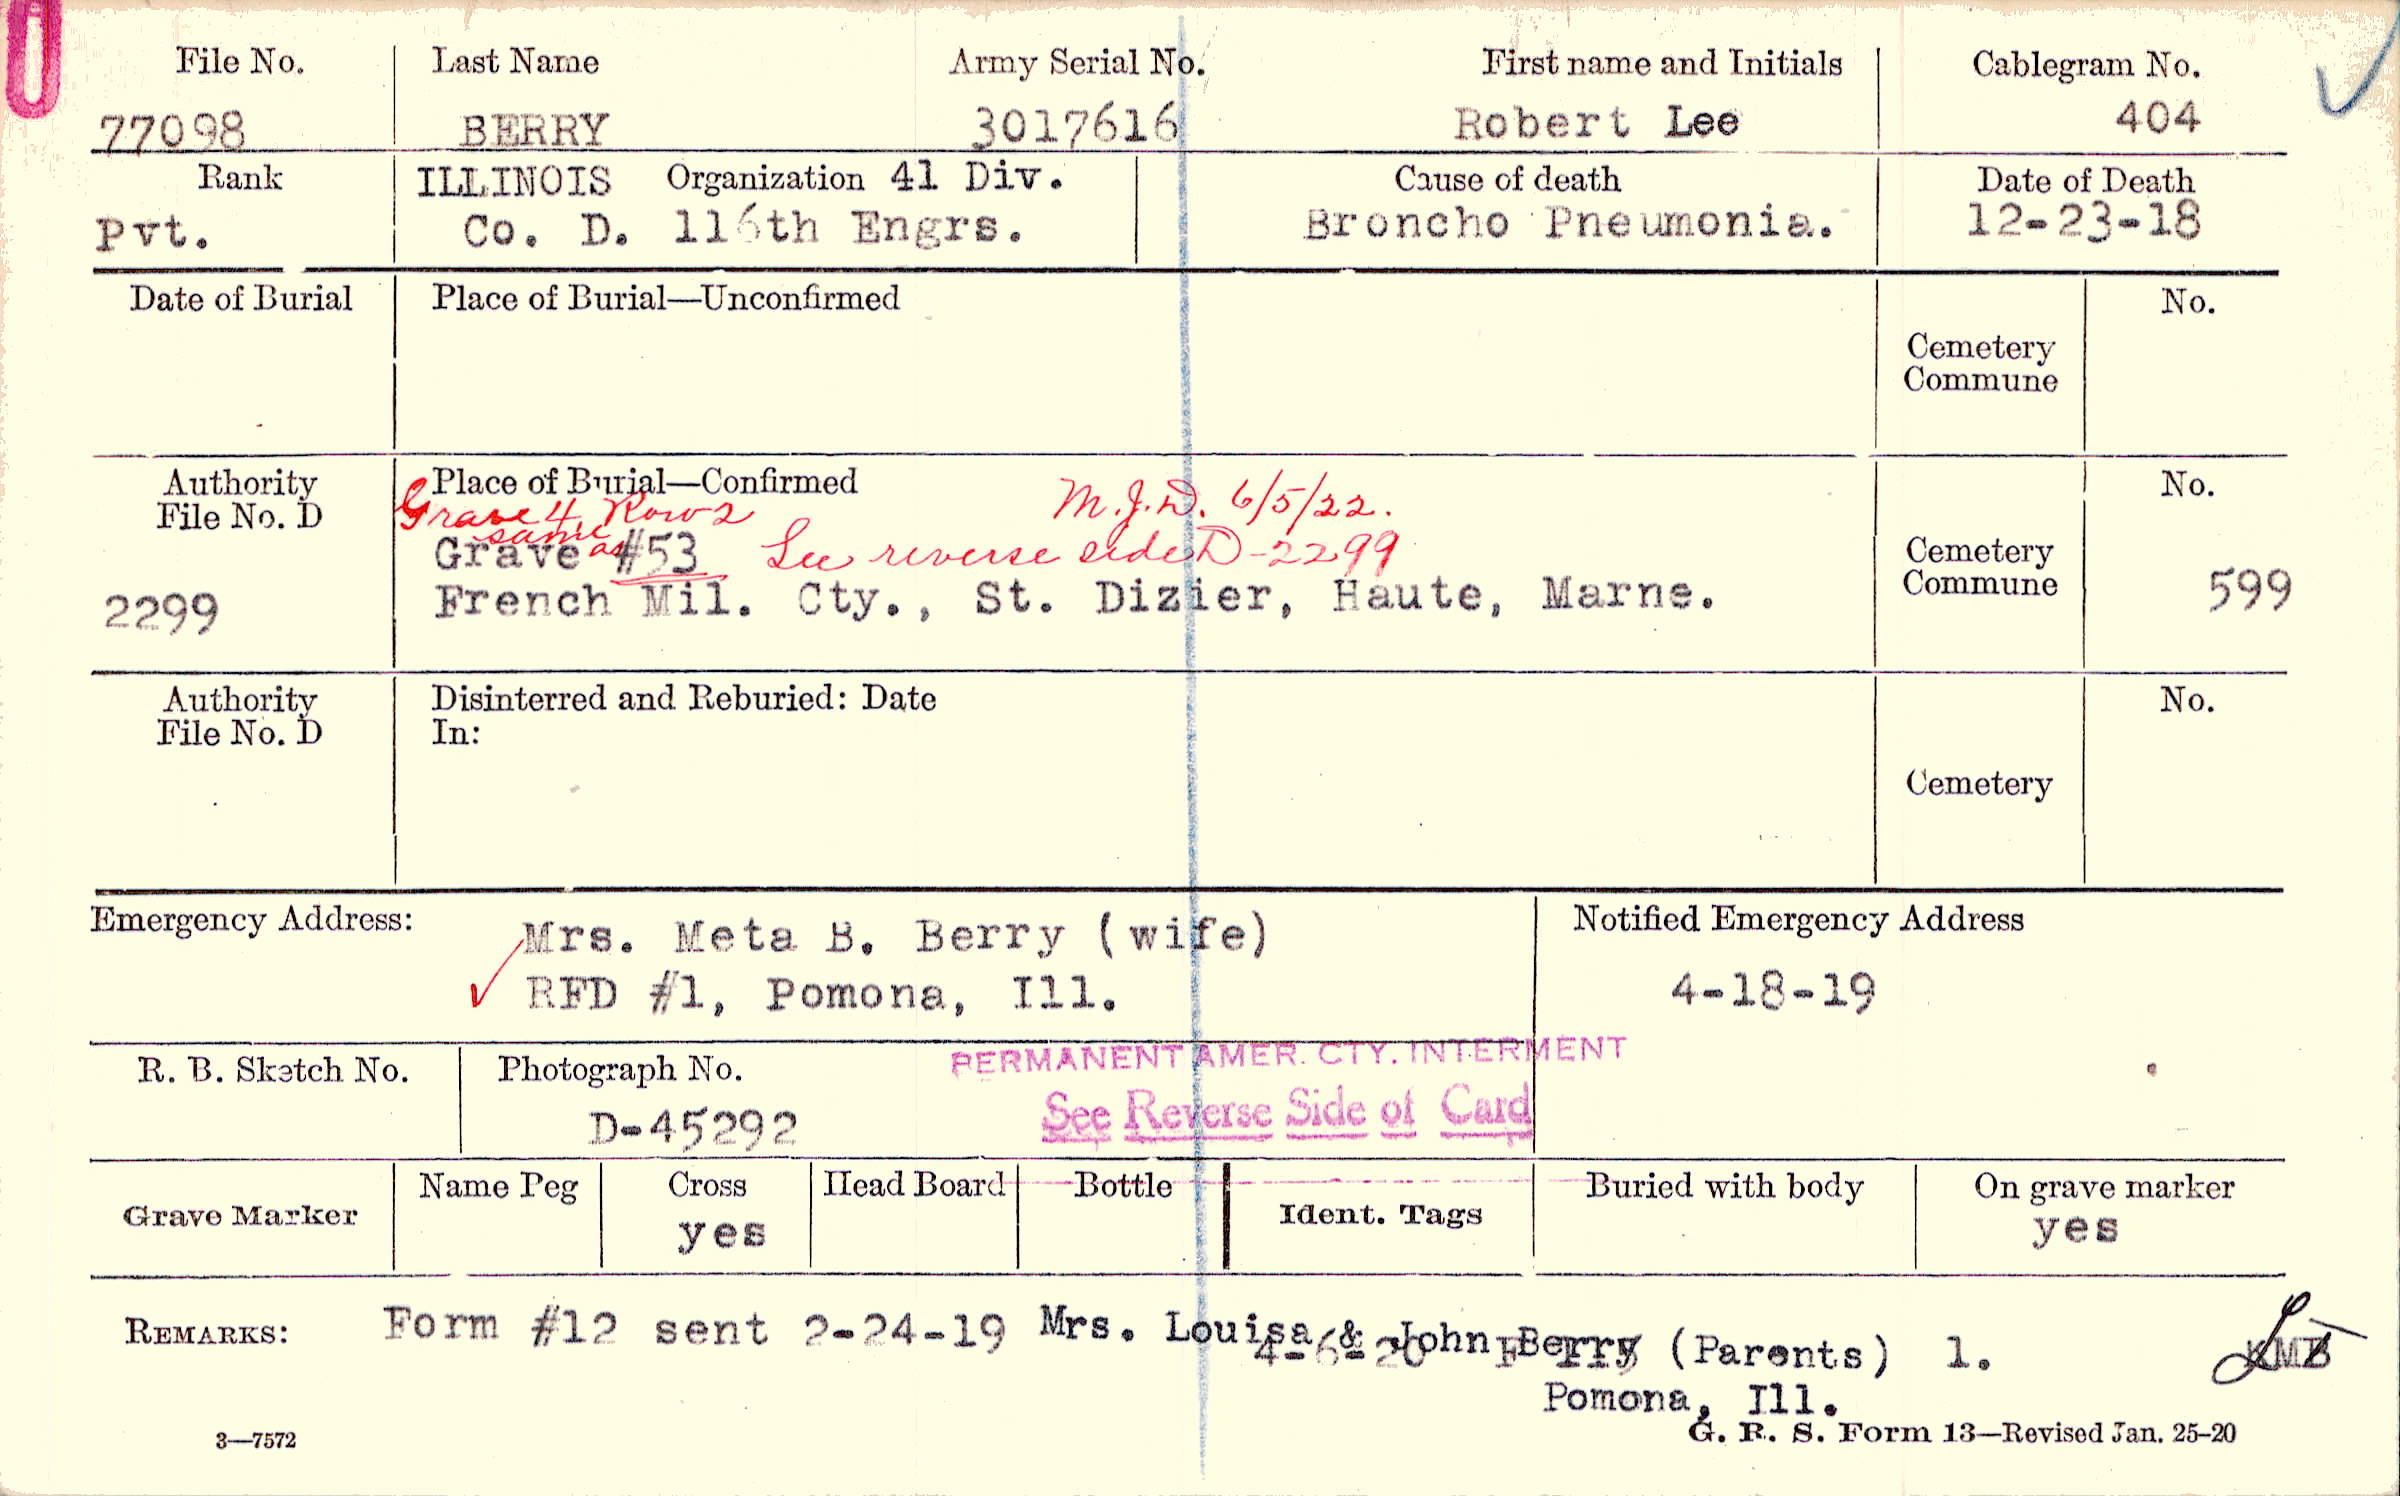 File No. Last Name Army Serial No. First name and Initials Cablegram No.
77098 BERRY 3017616 Robert Lee 404
Rank ILLINOIS Organization 41 Div. Cause of death Date of Death
Pvt. Co. D. 116th Engrs. Broncho Pneumonia. 12-23-18
Date of Burial Place of Burial—Unconfirmed No.
Cemetery
Commune
Authority Place of Burial—Confirmed M.J.D. 6/5/22. No.
File No. D Grave 4, Row 2
same as
Grave #53 See reverse side D-2299 Cemetery
2299 French Mil. Cty., St. Dizier, Haute, Marne. Commune 599
Authority Disinterred and Reburied: Date No.
File No. D In:
Cemetery
Emergency Address: Mrs. Meta B. Berry (wife) Notified Emergency Address
RFD #1, Pomona, Ill. 4-18-19
R. B. Sketch No. Photograph No. PERMANENT AMER. CTY. INTERMENT
D-45292 See Reverse Side of Card
Grave Marker Name Peg Cross Head Board Bottle Ident. Tags Buried with body On grave marker
yes yes
REMARKS: Form #12 sent 2-24-19 Mrs. Louisa & John Berry (Parents) 1.
4-6-20
KMB
Pomona, Ill.
3—7572 G. R. S. Form 13—Revised Jan. 25-20